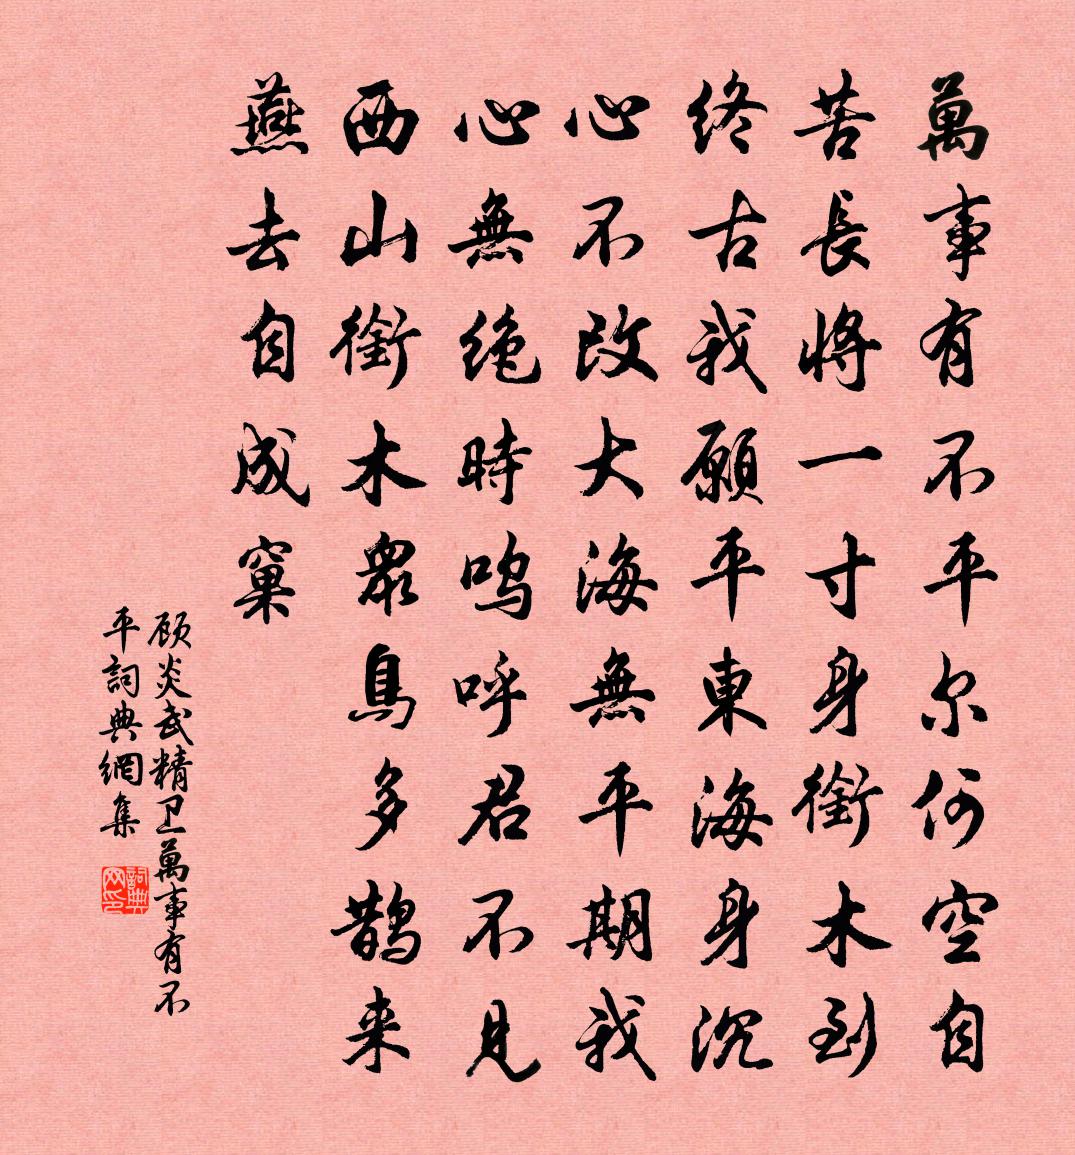 萬事有不平尔何空自
苦長將一寸身銜木到
終古我願平東海身沉
心不改大海無平期我
心無绝時鸣呼君不見
西山銜木眾鳥多鹊来
燕去自成窠
顾炎武精卫萬事有不
平詞典網集
詞典网印